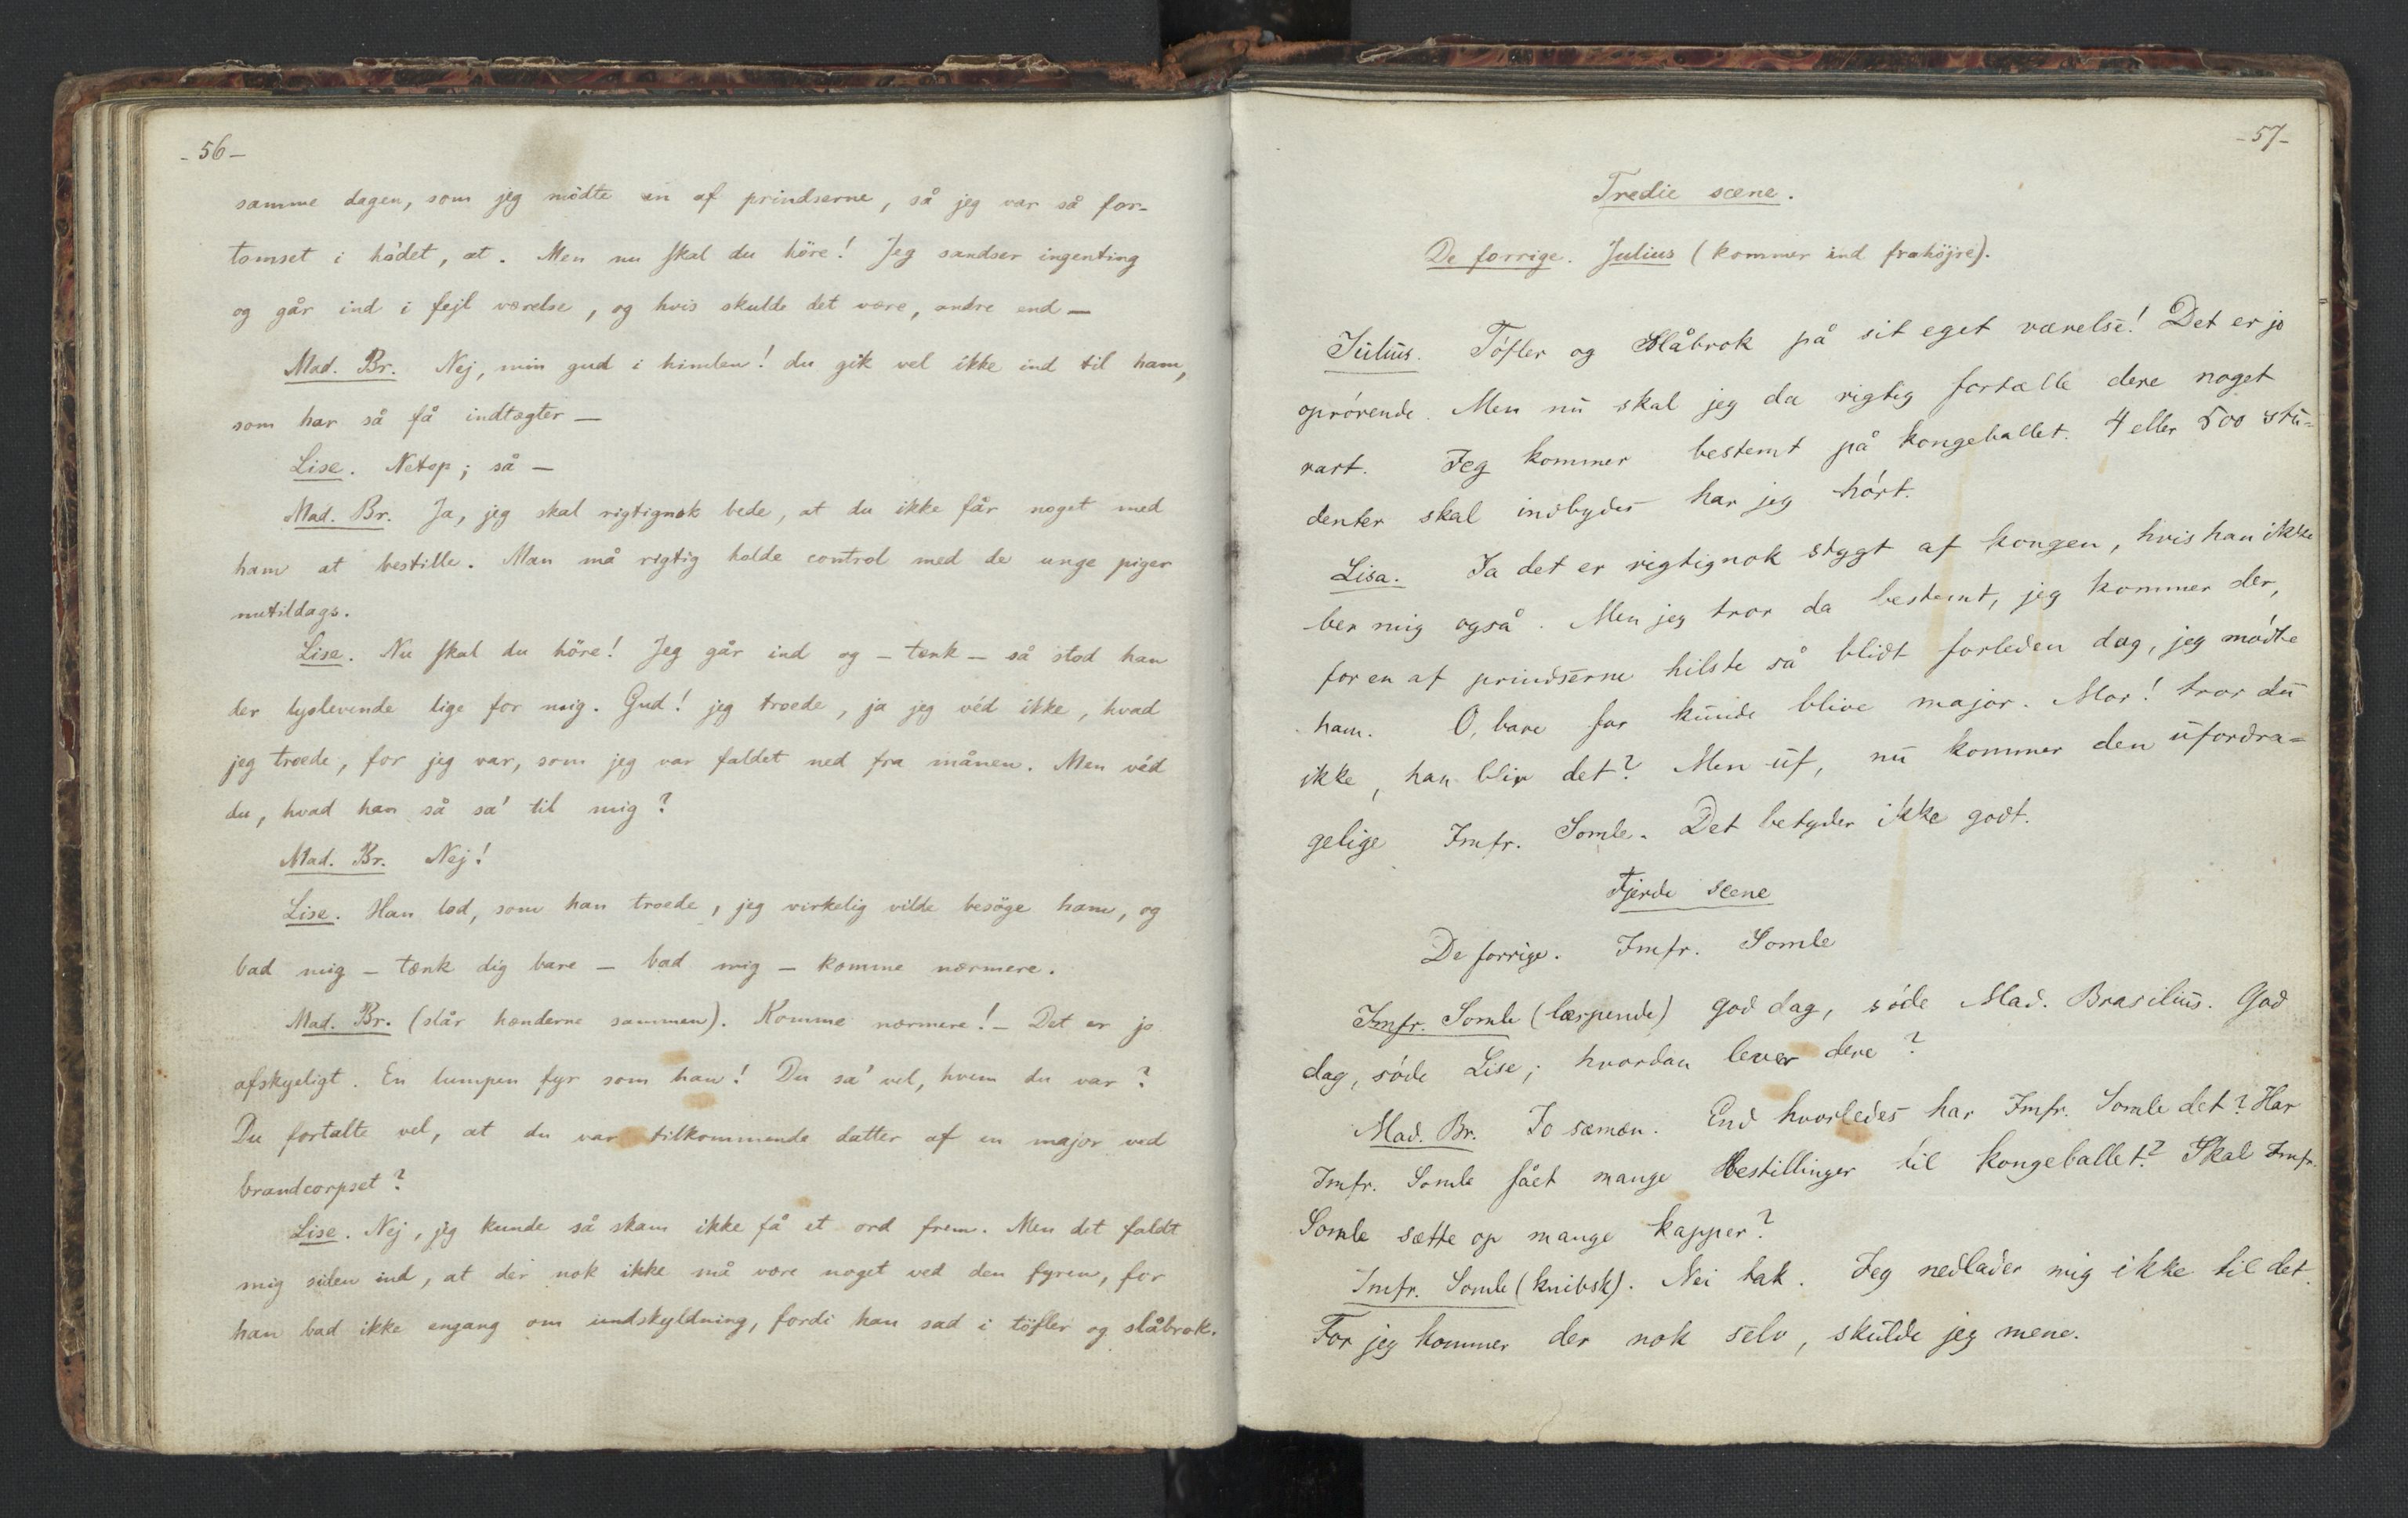 - 56 -
samme dagen, som jeg mödte en af prindserne, så jeg var så for-
tomset i hödet, at. Men nu skal du höre! Jeg sandser ingenting
og går ind i fejl værelse, og hvis skulde det være, andre end —
Mad. Br. Nej, min gud i himlen! du gik vel ikke ind til ham,
som har så få indtægter —
Lise. Netop; så —
Mad. Br. Ja, jeg skal rigtignok bede, at du ikke får noget med
ham at bestille. Man må rigtig holde control med de unge piger
nutildags.
Lise. Nu skal du höre! Jeg går ind og – tænk – så stod han
der lyslevende lige for mig. Gud! jeg troede, ja jeg véd ikke, hvad
jeg troede, for jeg var, som jeg var faldet ned fra månen. Men véd
du, hvad han så sa' til mig?
Mad. Br. Nej!
Lise. Han lod, som han troede, jeg virkelig vilde besöge ham, og
bad mig – tænk dig bare – bad mig – komme nærmere.
Mad. Br. (slår hænderne sammen). Komme nærmere! – Det er jo
afskyeligt. En lumpen fyr som han! Du sa' vel, hvem du var?
Du fortalte vel, at du var tilkommende datter af en major ved
brandcorpset?
Lise. Nej, jeg kunde så skam ikke få et ord frem. Men det faldt
mig siden ind, at der nok ikke må være noget ved den fyren, for
han bad ikke engang om undskyldning, fordi han sad i töfler og slåbrok.
- 57 -
Tredie scene.
De forrige. Julius (kommer ind fra höjre).
Julius. Töfler og Slåbrok på sit eget værelse! Det er jo
oprörende. Men nu skal jeg da rigtig fortælle dere noget
rart. Jeg kommer bestemt på kongeballet. 4 eller 500 stu=
denter skal indbydes har jeg hört.
Lisa. Ja det er rigtignok stygt af kongen, hvis han ikke
ber mig også. Men jeg tror da bestemt, jeg kommer der,
for en af prindserne hilste så blidt forleden dag, jeg mödte
ham. O, bare far kunde blive major. Mor! tror du
ikke, han blir det? Men uf, nu kommer den ufordra=
gelige Jmfr. Somle. Det betyder ikke godt.
Fjerde scene
De forrige. Jmfr. Somle
Jmfr. Somle (læspende) god dag, söde Mad. Brasilius. God
dag, söde Lise; hvordan lever dere?
Mad. Br. Jo sæmæn. End hvorledes har Jmfr. Somle det? Har
Jmfr. Somle fået mange Bestillinger til kongeballet? Skal Jmfr.
Somle sætte op mange kapper?
Jmfr. Somle (knibsk). Nei tak. Jeg nedlader mig ikke til det.
For jeg kommer der nok selv, skulde jeg mene.